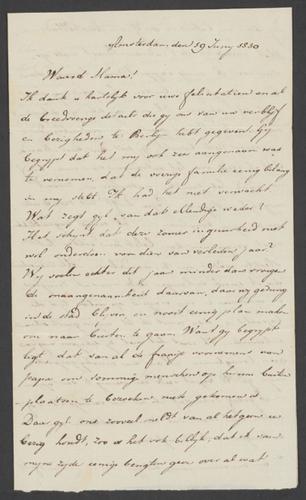 Amsterdam, den 19 Juny 1830
Waard Mama!
Ik dank u hartelyk voor uwe felicitatien en al
de breedvoerige details die gy ons van uw verblyf
en bezigheden te hebt gegeven. Gy
begrypt dat het my ook zeer aangenaam was
te vernemen, dat de overige familie eenig belang
in my stelt. Ik had het niet verwacht.
Wat zegt gyl. van dat ellendige weder?
Het schynt dat deze zomer in guurheid niet
wil onderdoen voor dien van verleden jaar?
Wy voelen echter dit jaar minder dan vorige
de onaangenaamheid daarvan, daar wy gedurig
in de stad blyven en nooit eenig plan maken
om naar buiten te gaan. Want gy begrypt
ligt, dat van al de fraaye voornemens van
papa om sommige menschen op hunne buiten
plaatsen te bezoeken niets gekomen is.
Daar gyl. ons zooveel meldt van al hetgeen u
bezig houdt, zoo is het ook billyk, dat ik van
myne zyde eenige berigten geve over al wat